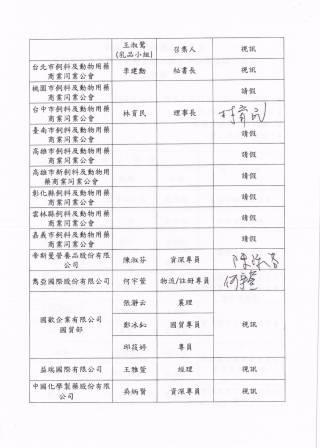 王淑鶯 召集人 視訊
(乳品小組)
台北市飼料及動物用藥
商業同業公會 李建勳 秘書長 視訊
桃園市飼料及動物用藥
商業同業公會 請假
台中市飼料及動物用藥
商業同業公會 林育民 理事長 林育民
臺南市飼料及動物用藥
商業同業公會 請假
高雄市飼料及動物用藥
商業同業公會 請假
高雄市新飼料及動物用
藥商業同業公會 請假
彰化縣飼料及動物用藥
商業同業公會 請假
雲林縣飼料及動物用藥
商業同業公會 請假
嘉義市飼料及動物用藥
商業同業公會 請假
帝斯曼營養品股份有限
公司 陳淑芬 資深專員 陳淑芬
喬亞國際股份有限公司 何宇萱 物流/註冊專員 何宇萱
國歐企業有限公司
國貿部
張瀞云 襄理
鄭冰妘 國貿專員 視訊
邱筱婷 專員
益瑞國際有限公司 王雅萱 經理 視訊
中國化學製藥股份有限
公司 吳炳賢 資深專員 視訊